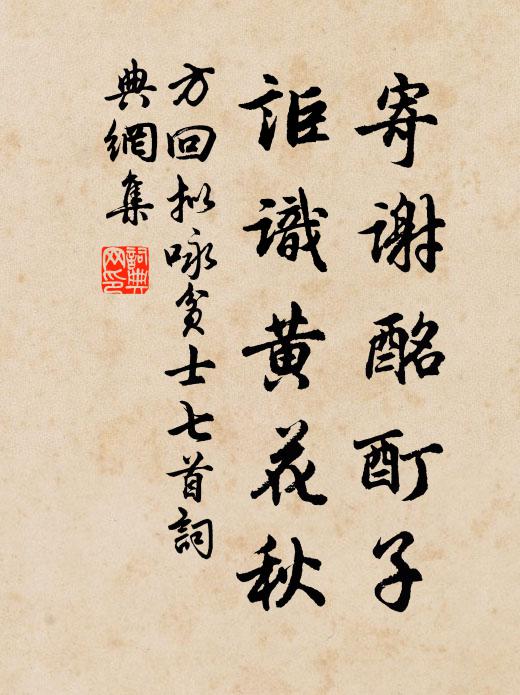 寄谢酩酊子
讵識黄花秋
方回拟咏贫士七首詞
典網集
詞典
网印